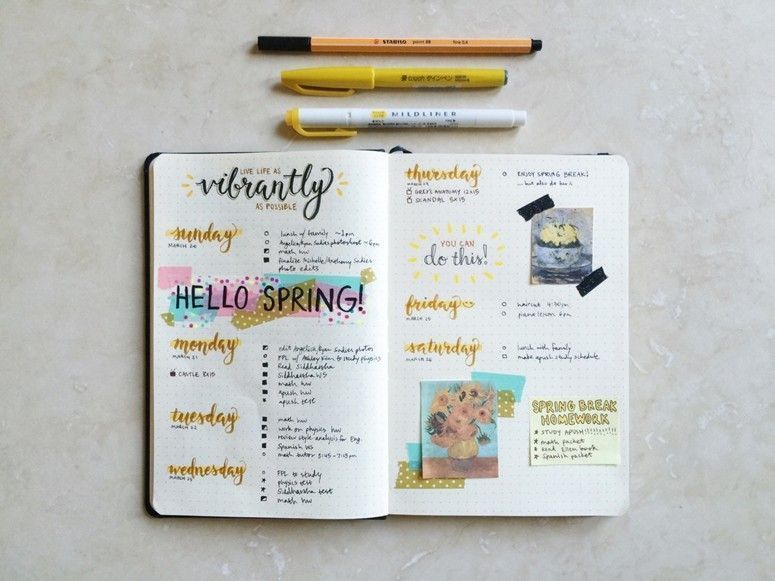 STABILO point 88 fine 0.4
touch サインペン
MILDLINER
LIVE LIFE AS
vibrantly
AS POSSIBLE
sunday
MARCH 20
lunch w/ family ~1pm
Angelica/Ryan Sadies photoshoot ~6pm
math hw
finalize Michelle/Anthony Sadies
photo edits
HELLO SPRING!
monday
MARCH 21
CASTLE 8x15
edit Angelica/Ryan Sadies photos
FPL w/ Ashley Kim to study physics
Read Siddhartha
Siddhartha WS
math hw
apush hw
apush test
tuesday
MARCH 22
math hw
work on physics hw
review style analysis for Eng.
Spanish WS
math tutor 5:45-7:15pm
wednesday
MARCH 23
FPL to study
physics test
Siddhartha test
math hw
thursday
MARCH 24
GREY'S ANATOMY 12x15
SCANDAL 5x15
ENJOY SPRING BREAK!
...but also do hw
YOU CAN
do this!
friday
MARCH 25
haircut 4:30pm
piano lesson 6pm
saturday
MARCH 26
lunch with family
make apush study schedule
SPRING BREAK
HOMEWORK
STUDY APUSH!!!!!!!!!!
math packet
read Ellen book
Spanish packet